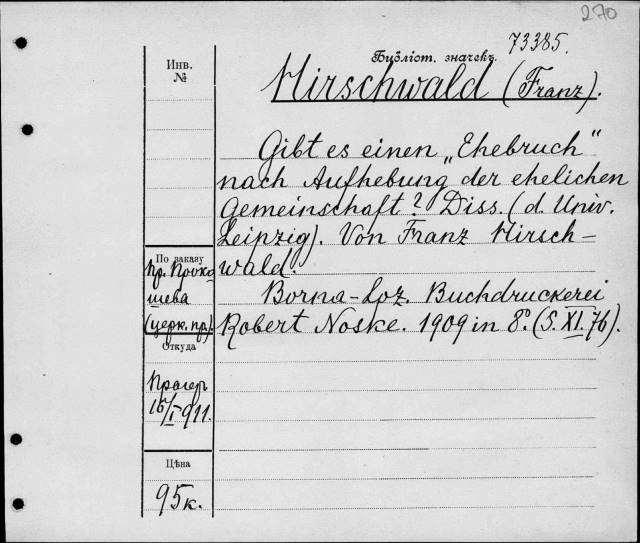 270
73385.
Библіот. значекъ.
Инв.
№
Hirschwald (Franz).
Gibt es einen „Ehebruch“
nach Aufhebung der ehelichen
Gemeinschaft? Diss. (d. Univ.
Leipzig). Von Franz Hirsch-
wald.
Borna-Lpz. Buchdruckerei
Robert Noske. 1909 in 8°. (S. XI. 76).
По заказу
Пр. Проко-
шева
(церк. пр.).
Откуда
Прагеръ
15/I 911.
Цѣна
95 к.